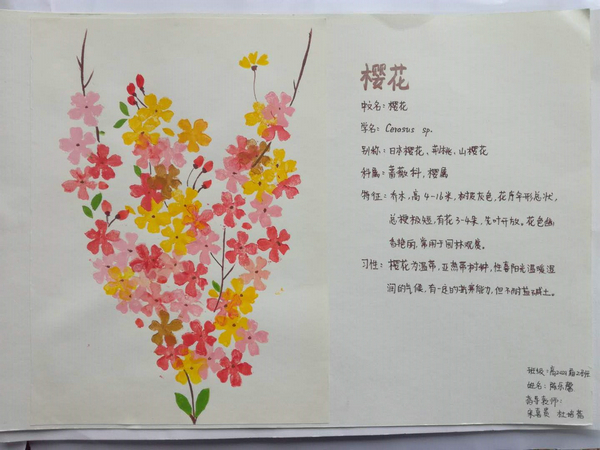 樱花
中文名：樱花
学名：Cerasus sp.
别称：日本樱花，荆桃，山樱花
科属：蔷薇科，樱属
特征：乔木，高4-16米，树皮灰色，花序伞形总状，
总梗极短，有花3-4朵，先叶开放。花色幽
香艳丽，常用于园林观赏。
习性：樱花为温带，亚热带树种，性喜阳光温暖湿
润的气候，有一定的耐寒能力，但不耐盐碱土。
班级：高
姓名：陈乐馨
指导教师：